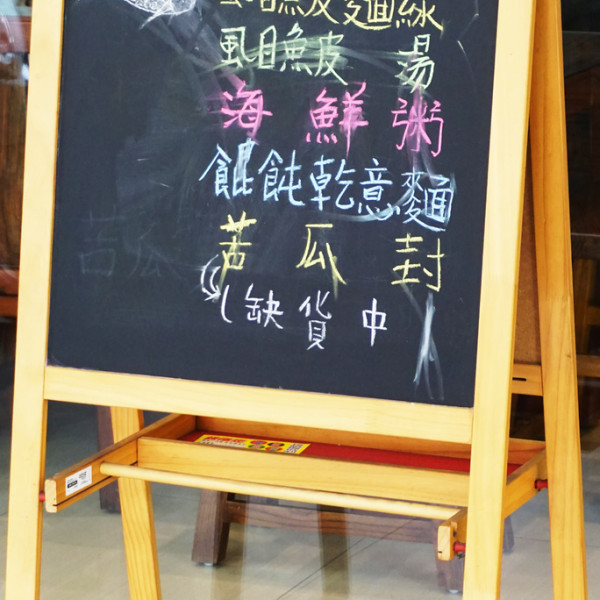 虱目魚皮麵線
虱目魚皮 湯
海 鮮 粥
餛飩乾意麵
苦 瓜 封
缺貨中
苦瓜